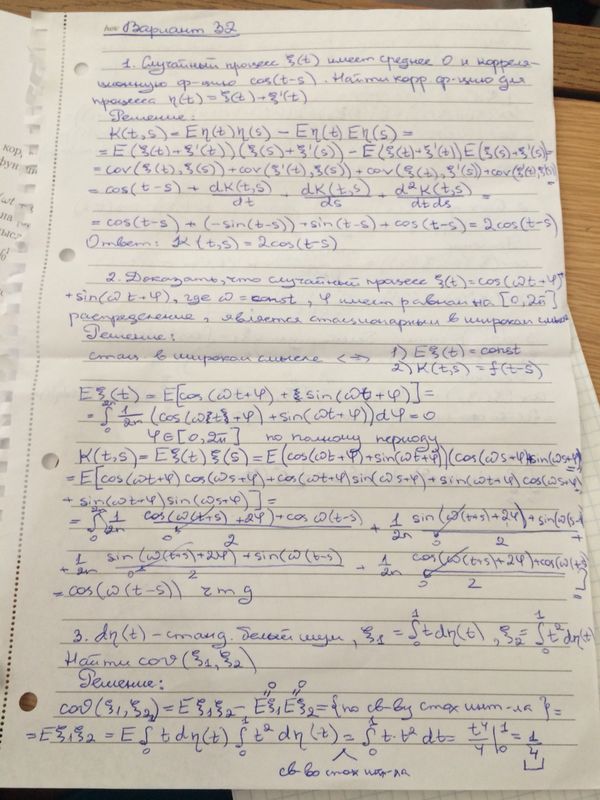 Вариант 32
1. Случайный процесс ξ(t) имеет среднее 0 и корреля-
ционную ф-цию cos(t-s). Найти корр ф-цию для
процесса η(t) = ξ(t) + ξ'(t)
Решение:
K(t,s) = Eη(t)η(s) - Eη(t)Eη(s) =
= E(ξ(t)+ξ'(t))(ξ(s)+ξ'(s)) - E(ξ(t)+ξ'(t))E(ξ(s)+ξ'(s)) =
= cov(ξ(t),ξ(s)) + cov(ξ'(t),ξ(s)) + cov(ξ(t),ξ'(s)) + cov(ξ'(t),ξ'(s))
= cos(t-s) + dK(t,s)/dt + dK(t,s)/ds + d²K(t,s)/dtds =
= cos(t-s) + (-sin(t-s)) + sin(t-s) + cos(t-s) = 2cos(t-s)
Ответ: K(t,s) = 2cos(t-s)
2. Доказать, что случайный процесс ξ(t) = cos(ωt+φ)+
+ sin(ωt+φ), где ω = const, φ имеет равном на [0,2π]
распределение, является стационарным в широком смысле
Решение:
стац. в широком смысле <=> 1) Eξ(t) = const
2) K(t,s) = f(t-s)
Eξ(t) = E[cos(ωt+φ) + sin(ωt+φ)] =
= ∫₀^2π 1/2π (cos(ωt+φ) + sin(ωt+φ))dφ = 0
φ∈[0,2π] по полному периоду
K(t,s) = Eξ(t)ξ(s) = E(cos(ωt+φ)+sin(ωt+φ))(cos(ωs+φ)+sin(ωs+φ)) =
= E[cos(ωt+φ)cos(ωs+φ) + cos(ωt+φ)sin(ωs+φ) + sin(ωt+φ)cos(ωs+φ)
+ sin(ωt+φ)sin(ωs+φ)] =
= ∫₀^2π 1/2π cos(ω(t+s)+2φ)+cos ω(t-s)/2 + 1/2π sin(ω(t+s)+2φ)+sin(ω(s-t)/2 +
+ 1/2π sin(ω(t+s)+2φ)+sin(ω(t-s)/2 + 1/2π cos(ω(t+s)+2φ)+cos(ω(t-s)/2 =
= cos(ω(t-s)) чтд
3. dη(t) - станд. белый шум, ξ₁ = ∫₀¹ t dη(t), ξ₂ = ∫₀¹ t² dη(t)
Найти cov(ξ₁,ξ₂)
Решение:
0 0
cov(ξ₁,ξ₂) = Eξ₁ξ₂ - Eξ₁Eξ₂ = {по св-ву стох инт-ла} =
= Eξ₁ξ₂ = E∫₀¹ t dη(t) ∫₀¹ t² dη(t) = ∫₀¹ t·t² dt = t⁴/4 |₀¹ = 1/4
св-во стох инт-ла